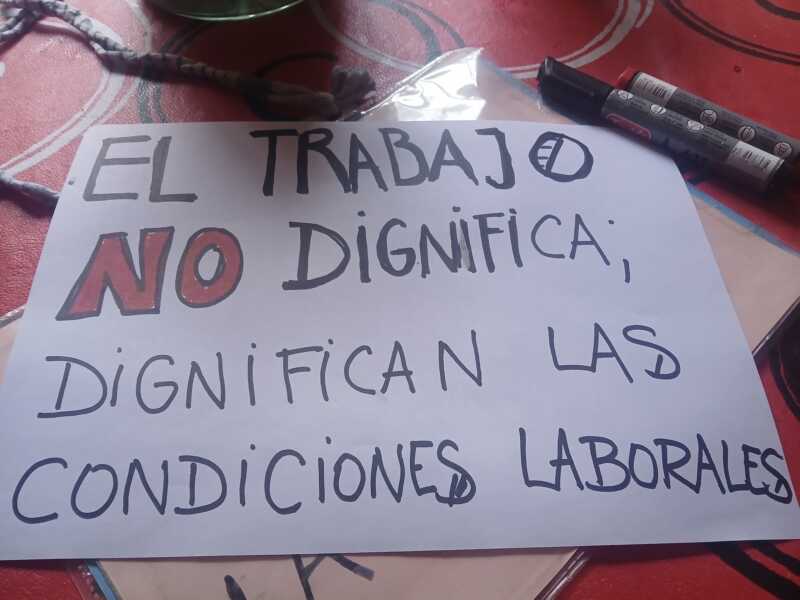 EL TRABAJO
NO DIGNIFICA;
DIGNIFICAN LAS
CONDICIONES LABORALES